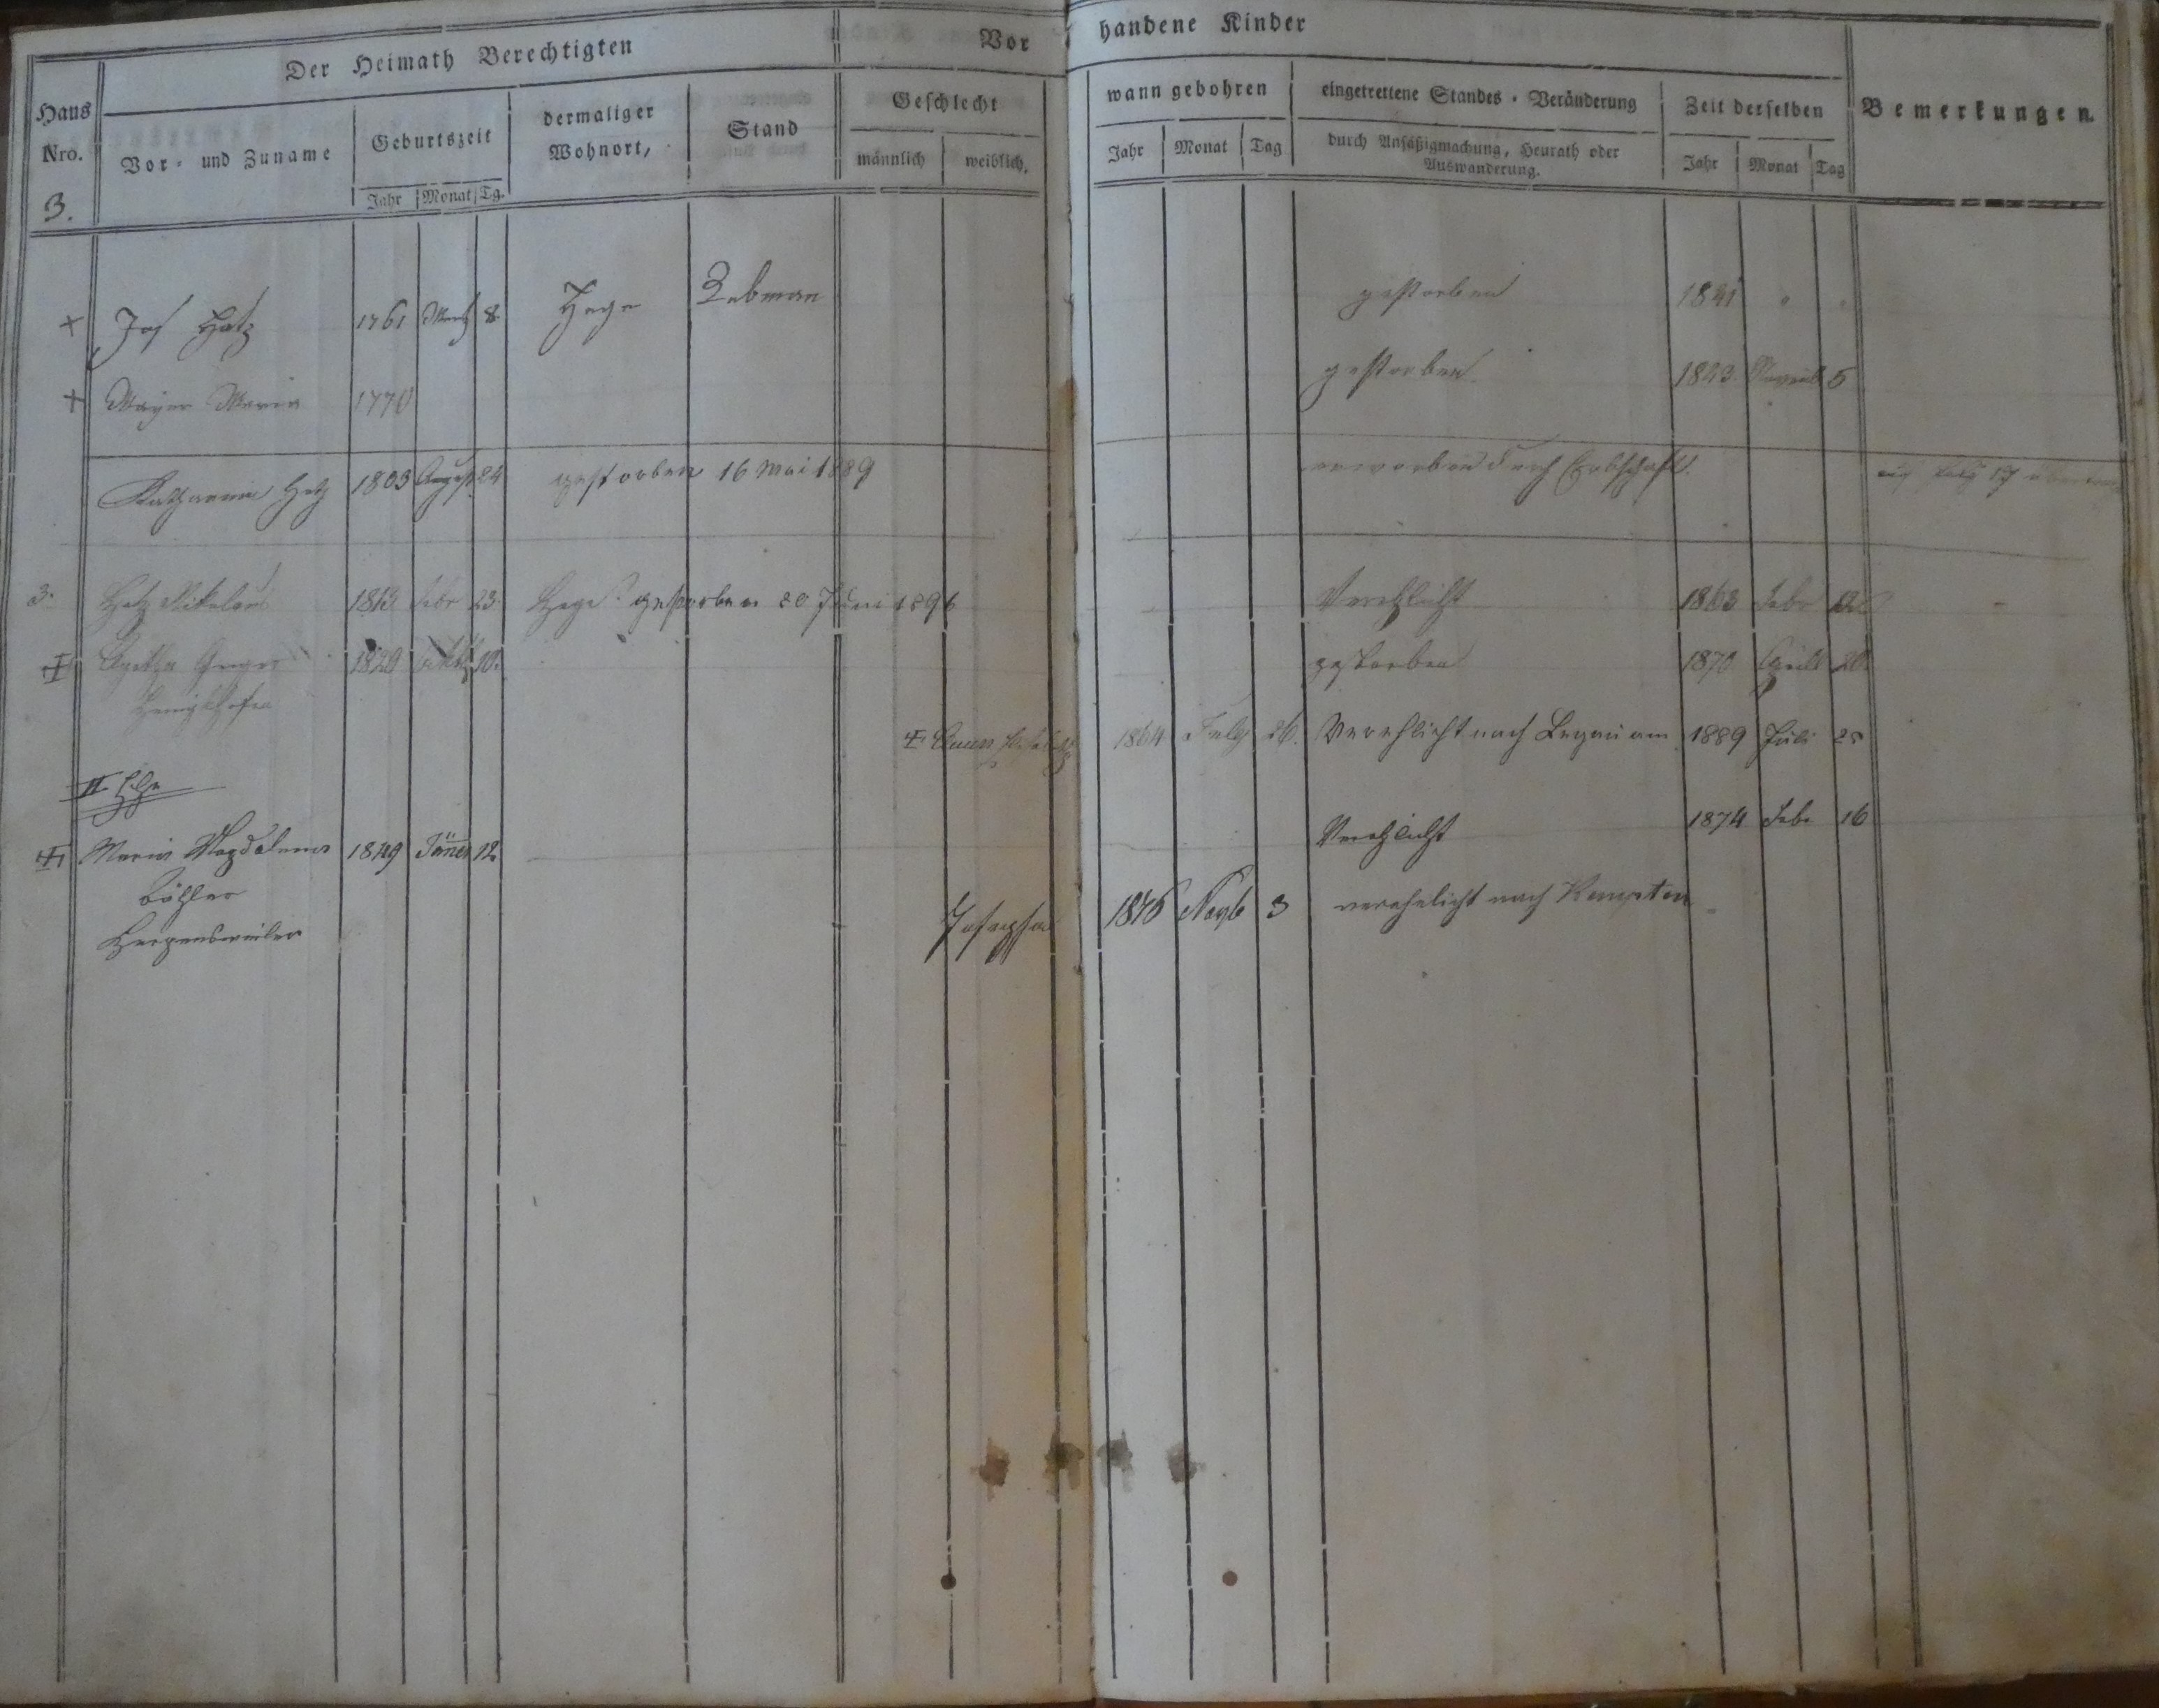 Der Heimath Berechtigten
Vorhandene Kinder
Haus Nro.
Vor- und Zuname
Geburtszeit
Jahr Monat Tg.
dermaliger Wohnort,
Stand
Geschlecht
männlich weiblich.
wann gebohren
Jahr Monat Tag
eingetrettene Standes-Veränderung
durch Ansäßigmachung, Heurath oder
Auswanderung.
Zeit derselben
Jahr Monat Tag
Bemerkungen.
3.
+ Jos Hatz 1761 8. Hege Rebman gestorben 1841
+ Mayer Maria 1770 gestorben 1843 5
Katharina Hatz 1803 August 24 gestorben 16 Mai 1889 erworben durch Erbschaft. 17
3. Hatz Nikolaus 1813 Febr 23. Hege gestorben 20 Juni 1896 Verehlicht 1863 Febr
Agatha 1829 10. gestorben 1870 April
Anna 1864 July 26. Verehlicht nach Legau am 1889 Juli 25
II Ehe
Maria Magdalena 1849 Jäner 12. Verehlicht 1874 Febr 16
Böhler
Hergensweiler
Josepha 1876 Novb 3 verehelicht nach Kempten